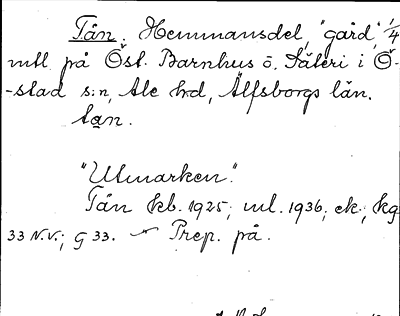 Tån. Hemmansdel, "gård", 1/4
mtl på Öst. Barnhus ö. Säteri i Ö-
-stad s:n, Ale hd, Älfsborgs län.
tan.
"Utmarken".
Tån kb. 1925; ml. 1936; ek.; kg
33 N.V.; G 33. Prep. på.